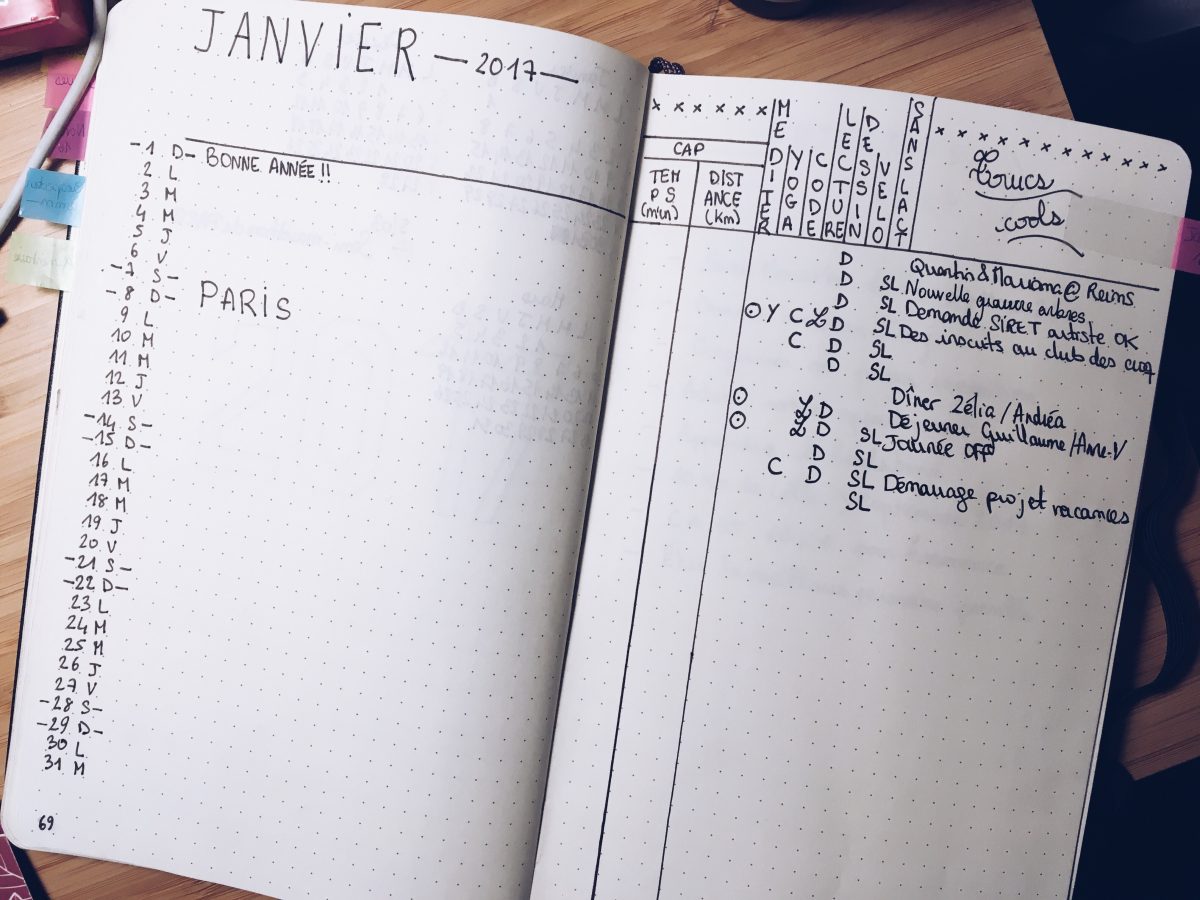 JANVIER — 2017 —
-1 D- BONNE ANNÉE !!
2 L
3 M
4 M
5 J
6 V
-7 S-
-8 D- PARIS
9 L
10 M
11 M
12 J
13 V
-14 S-
-15 D-
16 L
17 M
18 M
19 J
20 V
-21 S-
-22 D-
23 L
24 M
25 M
26 J
27 V
-28 S-
-29 D-
30 L
31 M
69
x x x x x x x
CAP
TEMPS (min)
DISTANCE (Km)
MEDITER
YOGA
CODE
LECTURE
DESSIN
VELO
SANS LACT
x x x x x x x x x x x x
Trucs
cools
D Quentin & Mariama @ Reims
D SL Nouvelle gravure arbres
D SL Demande SIRET artiste OK
⊙ Y C L D SL Des inscrits au club des
C D SL
D SL
⊙ L D Dîner Zélia / Andréa
⊙ L D SL Déjeuner Guillaume / Anne-V
D SL Journée OFF
C D SL Démarrage projet vacances
SL